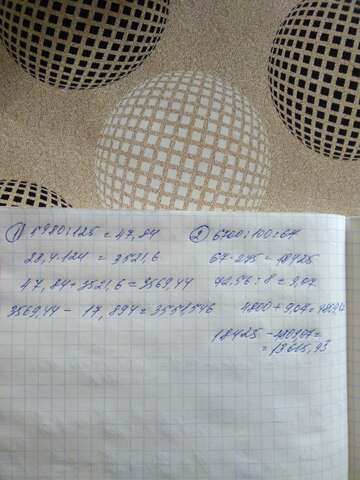 1) 5980:125 = 47,84
28,4·124 = 3521,6
47,84+3521,6=3569,44
3569,44 - 17,894=3551,546
2) 6700:100=67
67·275=18425
72,56:8=9,07
4800+9,07=4809,07
18425-4809,07=
=13615,93